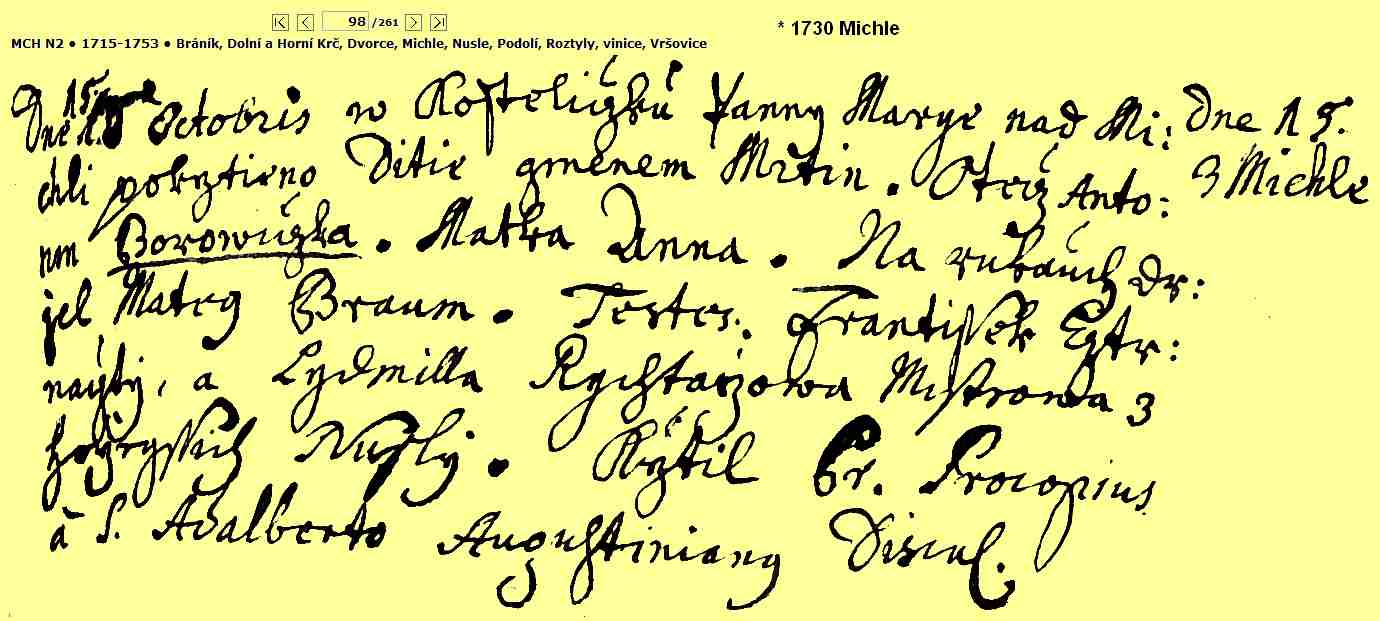 98 /261
* 1730 Michle
MCH N2 ● 1715-1753 ● Bráník, Dolní a Horní Krč, Dvorce, Michle, Nusle, Podolí, Roztyly, vinice, Vršovice
Dne 15 Octobris w Kosteliczku Panny Marye nad Mi:
Dne 15.
chli pokrztieno Ditie gmenem Mrtin. Otecz Anto:
z Michle
nin Borowiczka. Matka Anna. Na rukauch Dr:
jel Mateg Braum. Testes. Frantissek
a Lydmilla Rychtarzowa Mistrowa z
Nusly. Krztil Pr. Procopius
à S. Adalberto Augustiniany Discal.